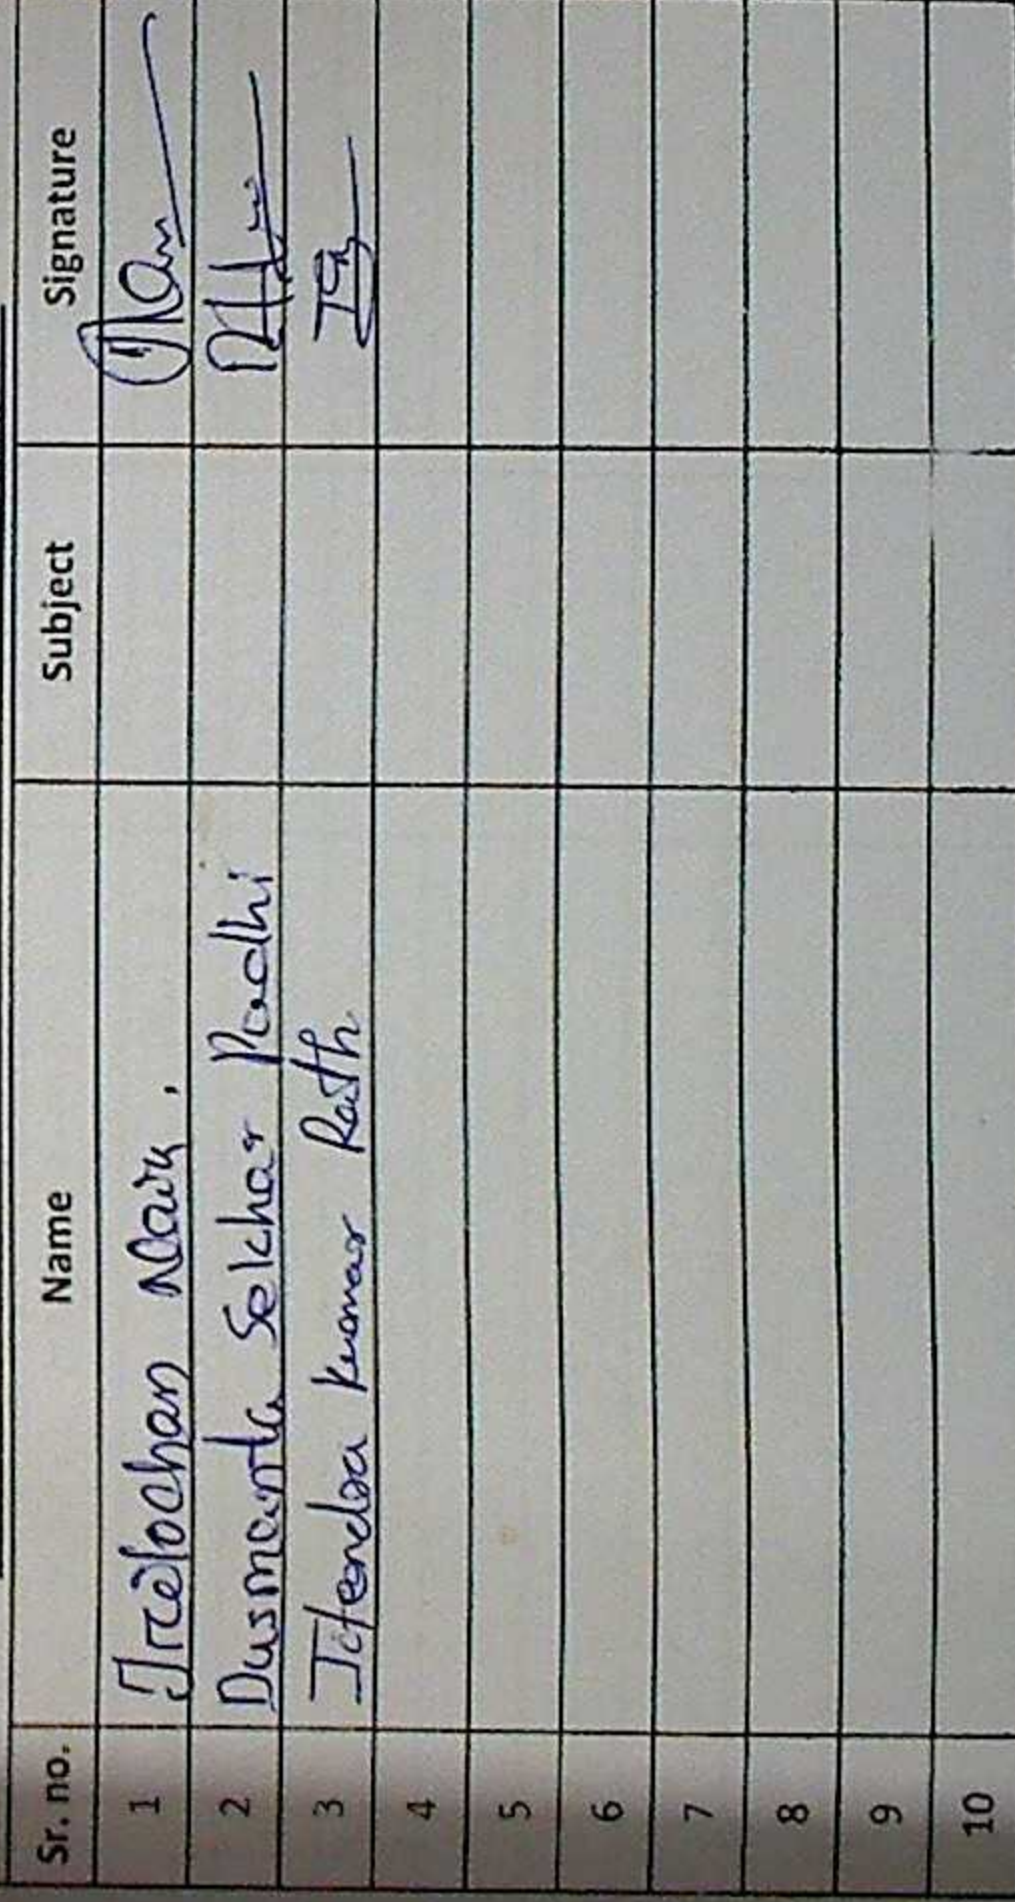 Sr. no. Name Subject Signature
1 Trilochan Naik.
2 Dusmanta Sekhar Padhi
3 Jitendra Kumar Rath
4
5
6
7
8
9
10